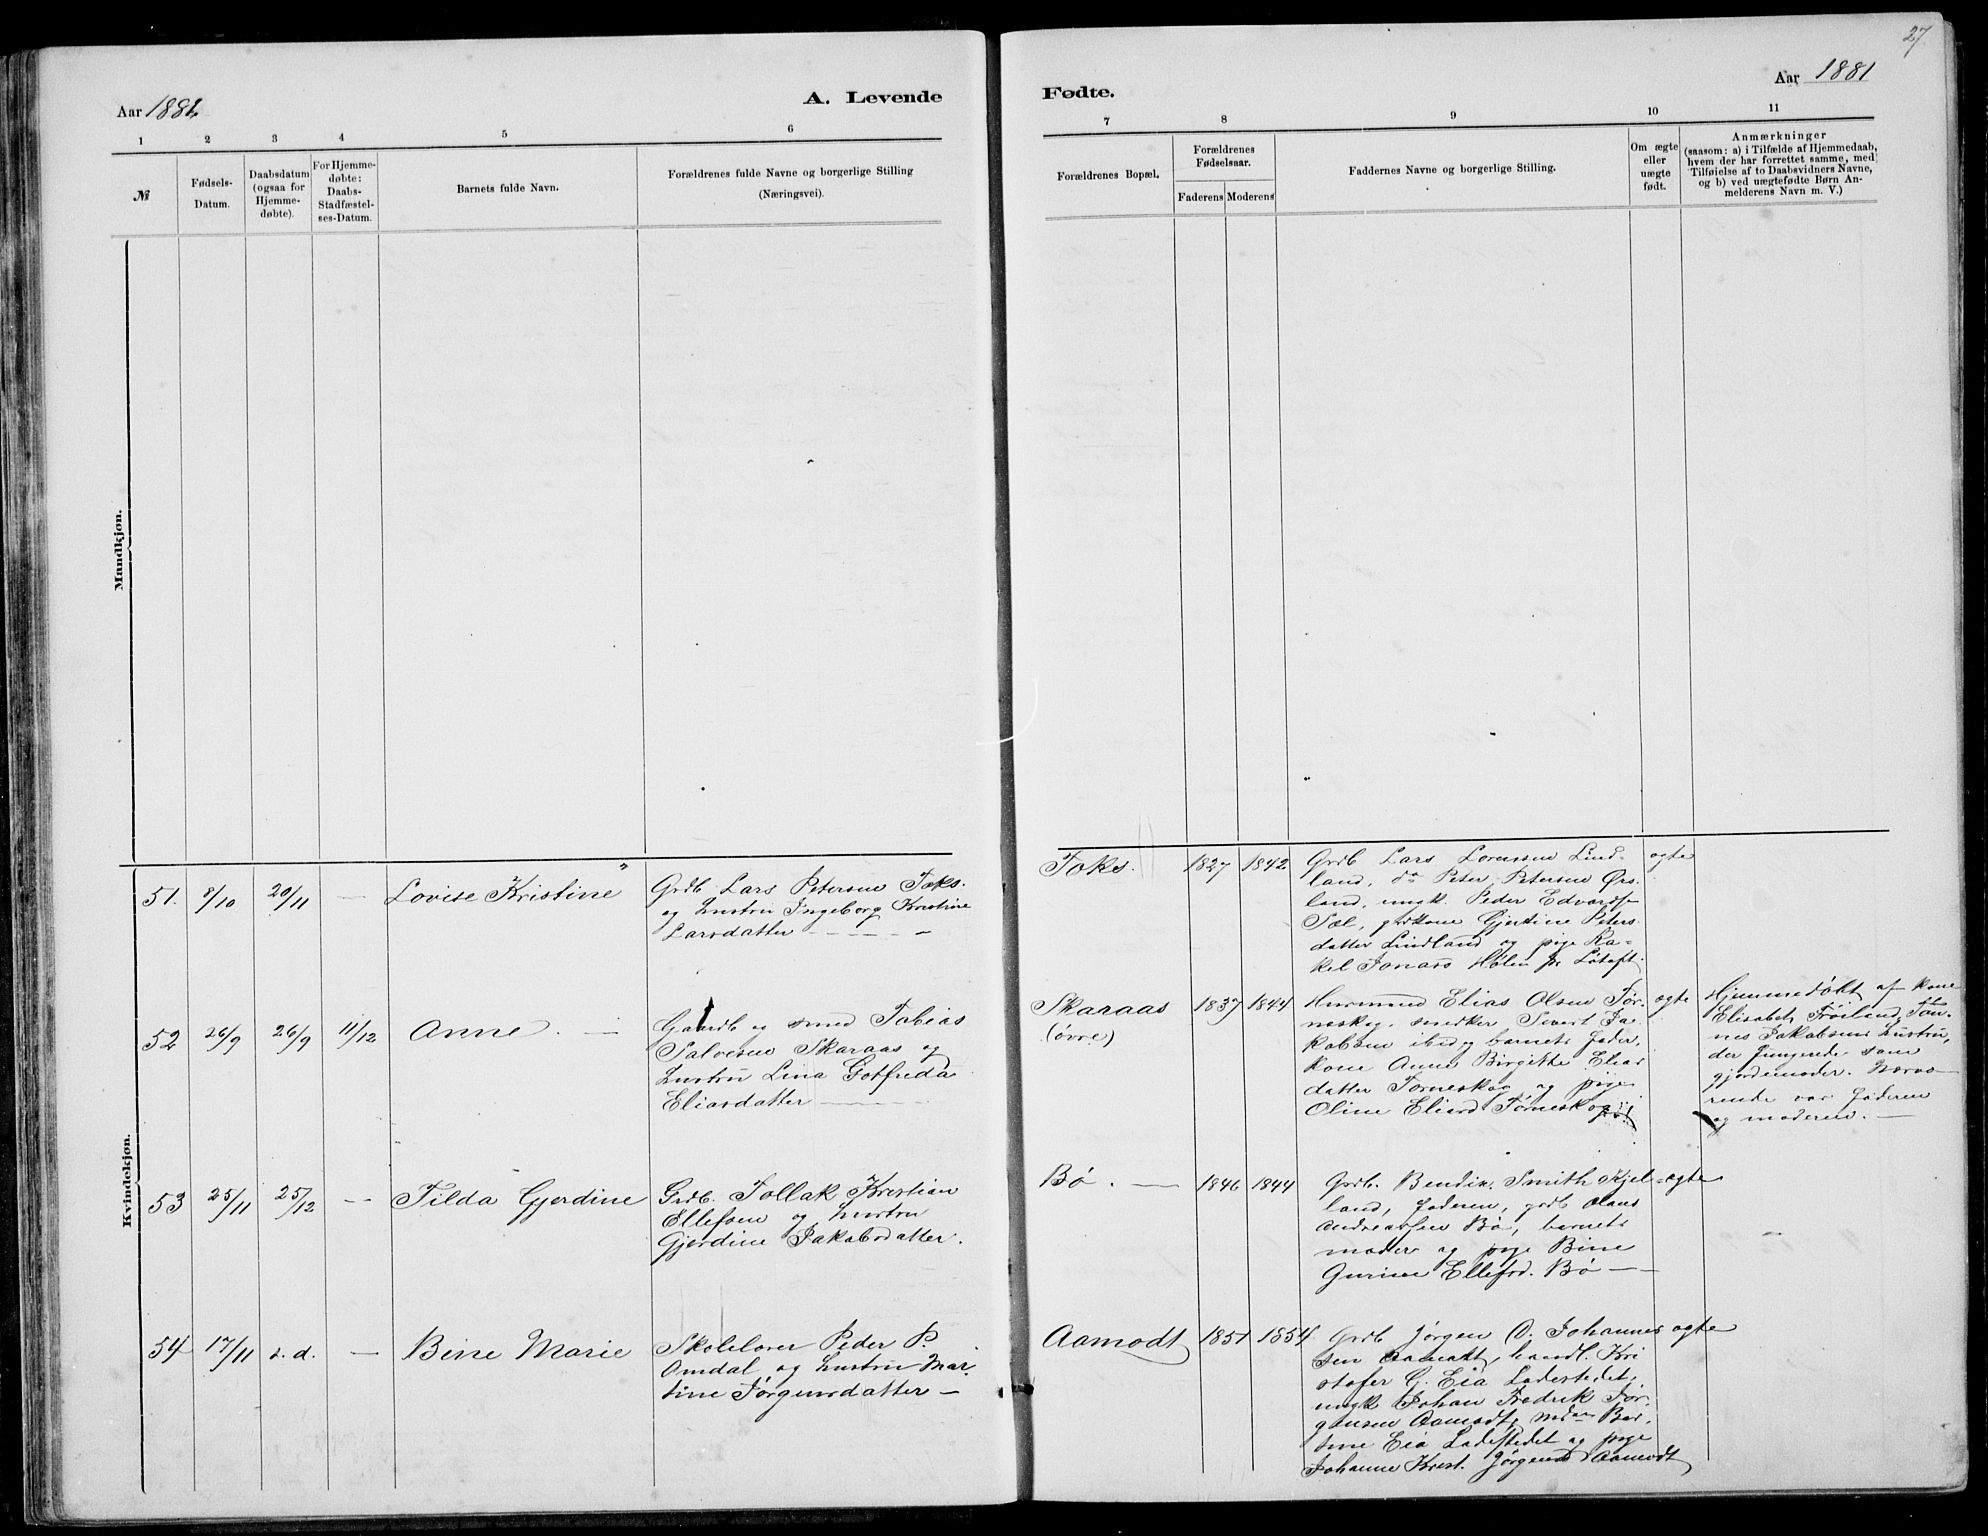 27
Aar 1881.
A. Levende
Fødte.
Aar 1881
1 2 3 4 5 6
7 8 9 10 11
№
Fødsels-
Datum.
Daabsdatum
(ogsaa for
Hjemme-
døbte).
For Hjemme-
døbte:
Daabs-
Stadfæstel-
ses-Datum.
Barnets fulde Navn.
Forældrenes fulde Navne og borgerlige Stilling
(Næringsvei).
Forældrenes Bopæl.
Forældrenes
Fødselsaar.
Faderens Moderens
Faddernes Navne og borgerlige Stilling.
Om ægte
eller
uægte
født.
Anmærkninger
(saasom: a) i Tilfælde af Hjemmedaab,
hvem der har forrettet samme, med
Tilføielse af to Daabsvidners Navne,
og b) ved uægtefødte Børn An-
melderens Navn m. V.)
Mandkjøn.
Kvindekjøn.
51. 8/10 20/11 — Lovise Kristine
Grdb. Lars Petersen Foks.
og hustru Ingeborg Kristine
Larsdatter
Foks. 1827 1842
Grdb Lars Lorensen Lind-
land, do Peter Petersen Ørs-
land, ungk. Peder Edvards-
Sæl, grdkone Gjertine Peters
datter Lindland og pige Ra-
kel Jonass Hølen
ægte
52 26/9 26/9 11/12 Anne. —
Gaardb og smed Tobias
Salvesen Skaraas og
hustru Lina Gotfreda
Eliasdatter
Skaraas
(øvre)
1837 1844
Husmand Elias Olsen Tør-
neskog, snedker Sivert Ja-
kobsen ibid, barnets fader,
kone Anne Birgitte Elias
datter Tørneskog og pige
Oline Eliasd Tørneskog
ægte
Hjemmedøbt af kone
Elisabet Frøiland, Tøn-
nes Jakobsens hustru,
der fungerede som
gjordemoder. Nærvæ-
rende var faderen
og moderen. —
53 25/11 25/12 — Tilda Gjerdine
Grdb. Tollak Kristian
Ellefsen og hustru
Gjerdine Jakobsdatter.
Bø. — 1846 1844
Grdb. Bendix. Smith Kjel-
land, faderen, grdb Olaus
Andreassen Bø, barnets
moder og pige Bine
Gurine Ellefsd. Bø —
ægte
54 17/11 s. d. — Bine Marie
Skolelærer Peder P.
Omdal og hustru Mar-
tine Jørgensdatter —
Aamodt 1851 1854
Grdb Jørgen O. Johannes
sen Aamodt, handl. Kri
stofer G. Eia Ladestedet,
ungk Johan Fredrik Jør-
gensen Aamodt, mdm Ber-
tine Eia Ladestedet og pige
Johanne Krist. Jørgensd Aamodt
ægte